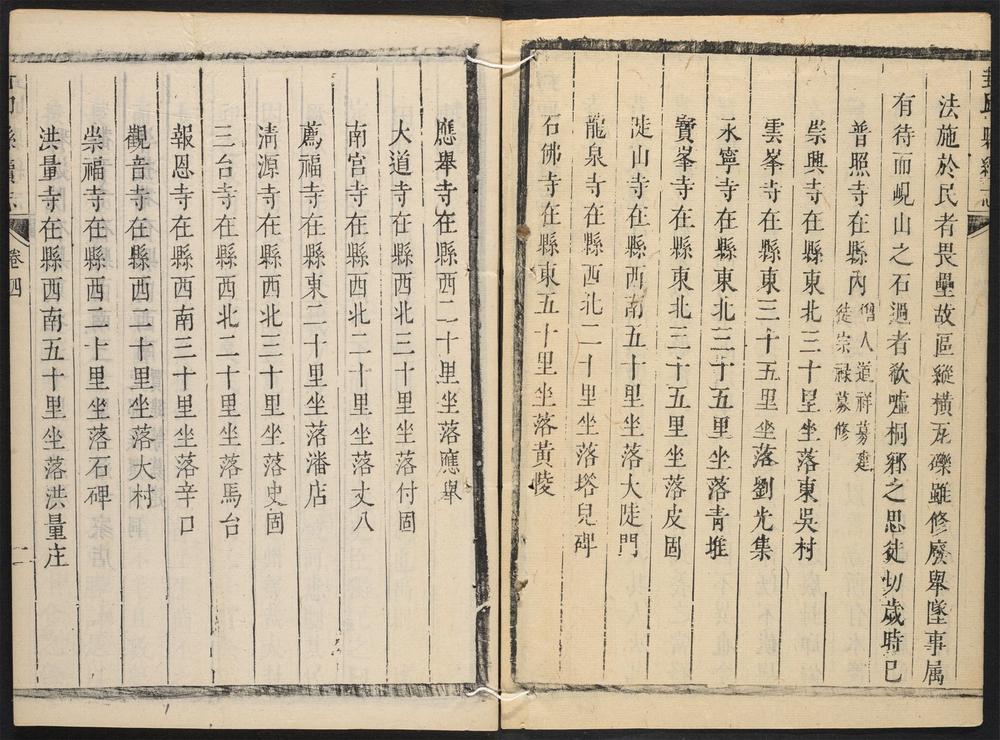 封邱縣續志
法施於民者畏壘故區縱橫瓦礫雖修廢舉墜事属
有待而峴山之石過者欷噓桐鄉之思徒切歲時已
普照寺在縣內僧人道祥募建
徒宗禄募修
崇興寺在縣東北三十里坐落東吳村
雲峯寺在縣東三十五里坐落劉光集
永寧寺在縣東北三十五里坐落青堆
寳峯寺在縣東北三十五里坐落皮固
陡山寺在縣西南五十里坐落大陡門
龍泉寺在縣西北二十里坐落塔兒碑
石佛寺在縣東五十里坐落黃陵
應舉寺在縣西二十里坐落應舉
大道寺在縣西北三十里坐落付固
南宮寺在縣西北二十里坐落丈八
薦福寺在縣東二十里坐落潘店
淸源寺在縣西北三十里坐落史固
三台寺在縣西北二十里坐落馬台
報恩寺在縣西南三十里坐落辛口
觀音寺在縣西二十里坐落大村
崇福寺在縣西二十里坐落石碑
洪量寺在縣西南五十里坐落洪量庄
封邱縣續志
卷四
二